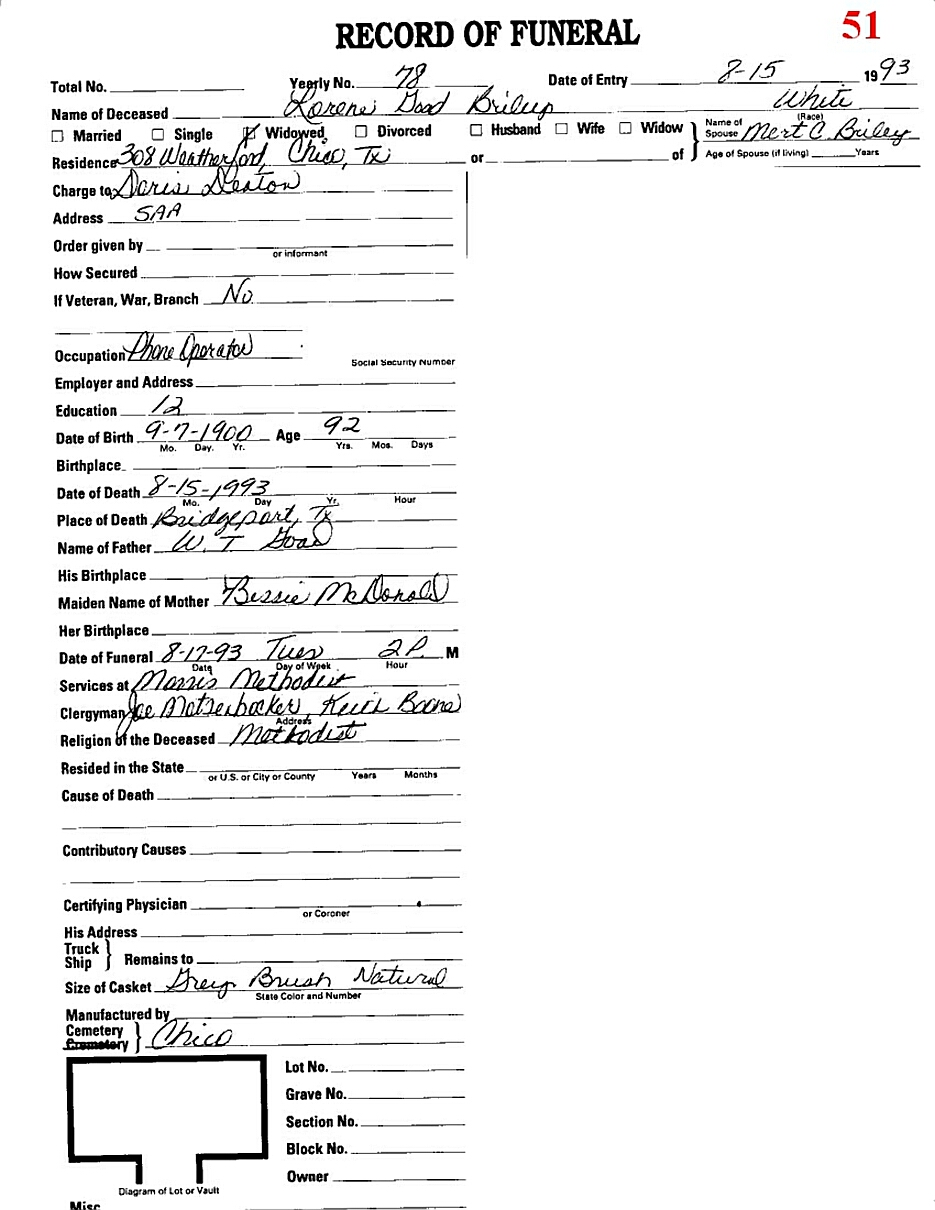 51
RECORD OF FUNERAL
Total No. Yearly No. 78 Date of Entry 8-15 1993
Name of Deceased Lorene Goad Briley White
(Race)
Married Single Widowed Divorced Husband Wife Widow Name of Spouse Mert C. Briley
Residence 308 Weatherford, Chico, Tx or of Age of Spouse (if living) Years
Charge to Doris Deaton
Address SAA
Order given by
or informant
How Secured
If Veteran, War, Branch No
Occupation Phone Operator
Social Security Number
Employer and Address
Education 12
Date of Birth 9-7-1900 Age 92
Mo. Day. Yr. Yrs. Mos. Days
Birthplace
Date of Death 8-15-1993
Mo. Day Yr. Hour
Place of Death Bridgeport, Tx
Name of Father W. T. Goad
His Birthplace
Maiden Name of Mother Bessie McDonald
Her Birthplace
Date of Funeral 8-17-93 Tues 2 P. M
Date Day of Week Hour
Services at Morris Methodist
Clergyman Joe Keith Boone
Address
Religion of the Deceased Methodist
Resided in the State
or U.S. or City or County Years Months
Cause of Death
Contributory Causes
Certifying Physician
or Coroner
His Address
Truck
Ship Remains to
Size of Casket Grey Brush Natural
State Color and Number
Manufactured by
Cemetery
Crematory Chico
Lot No.
Grave No.
Section No.
Block No.
Owner
Diagram of Lot or Vault
Misc